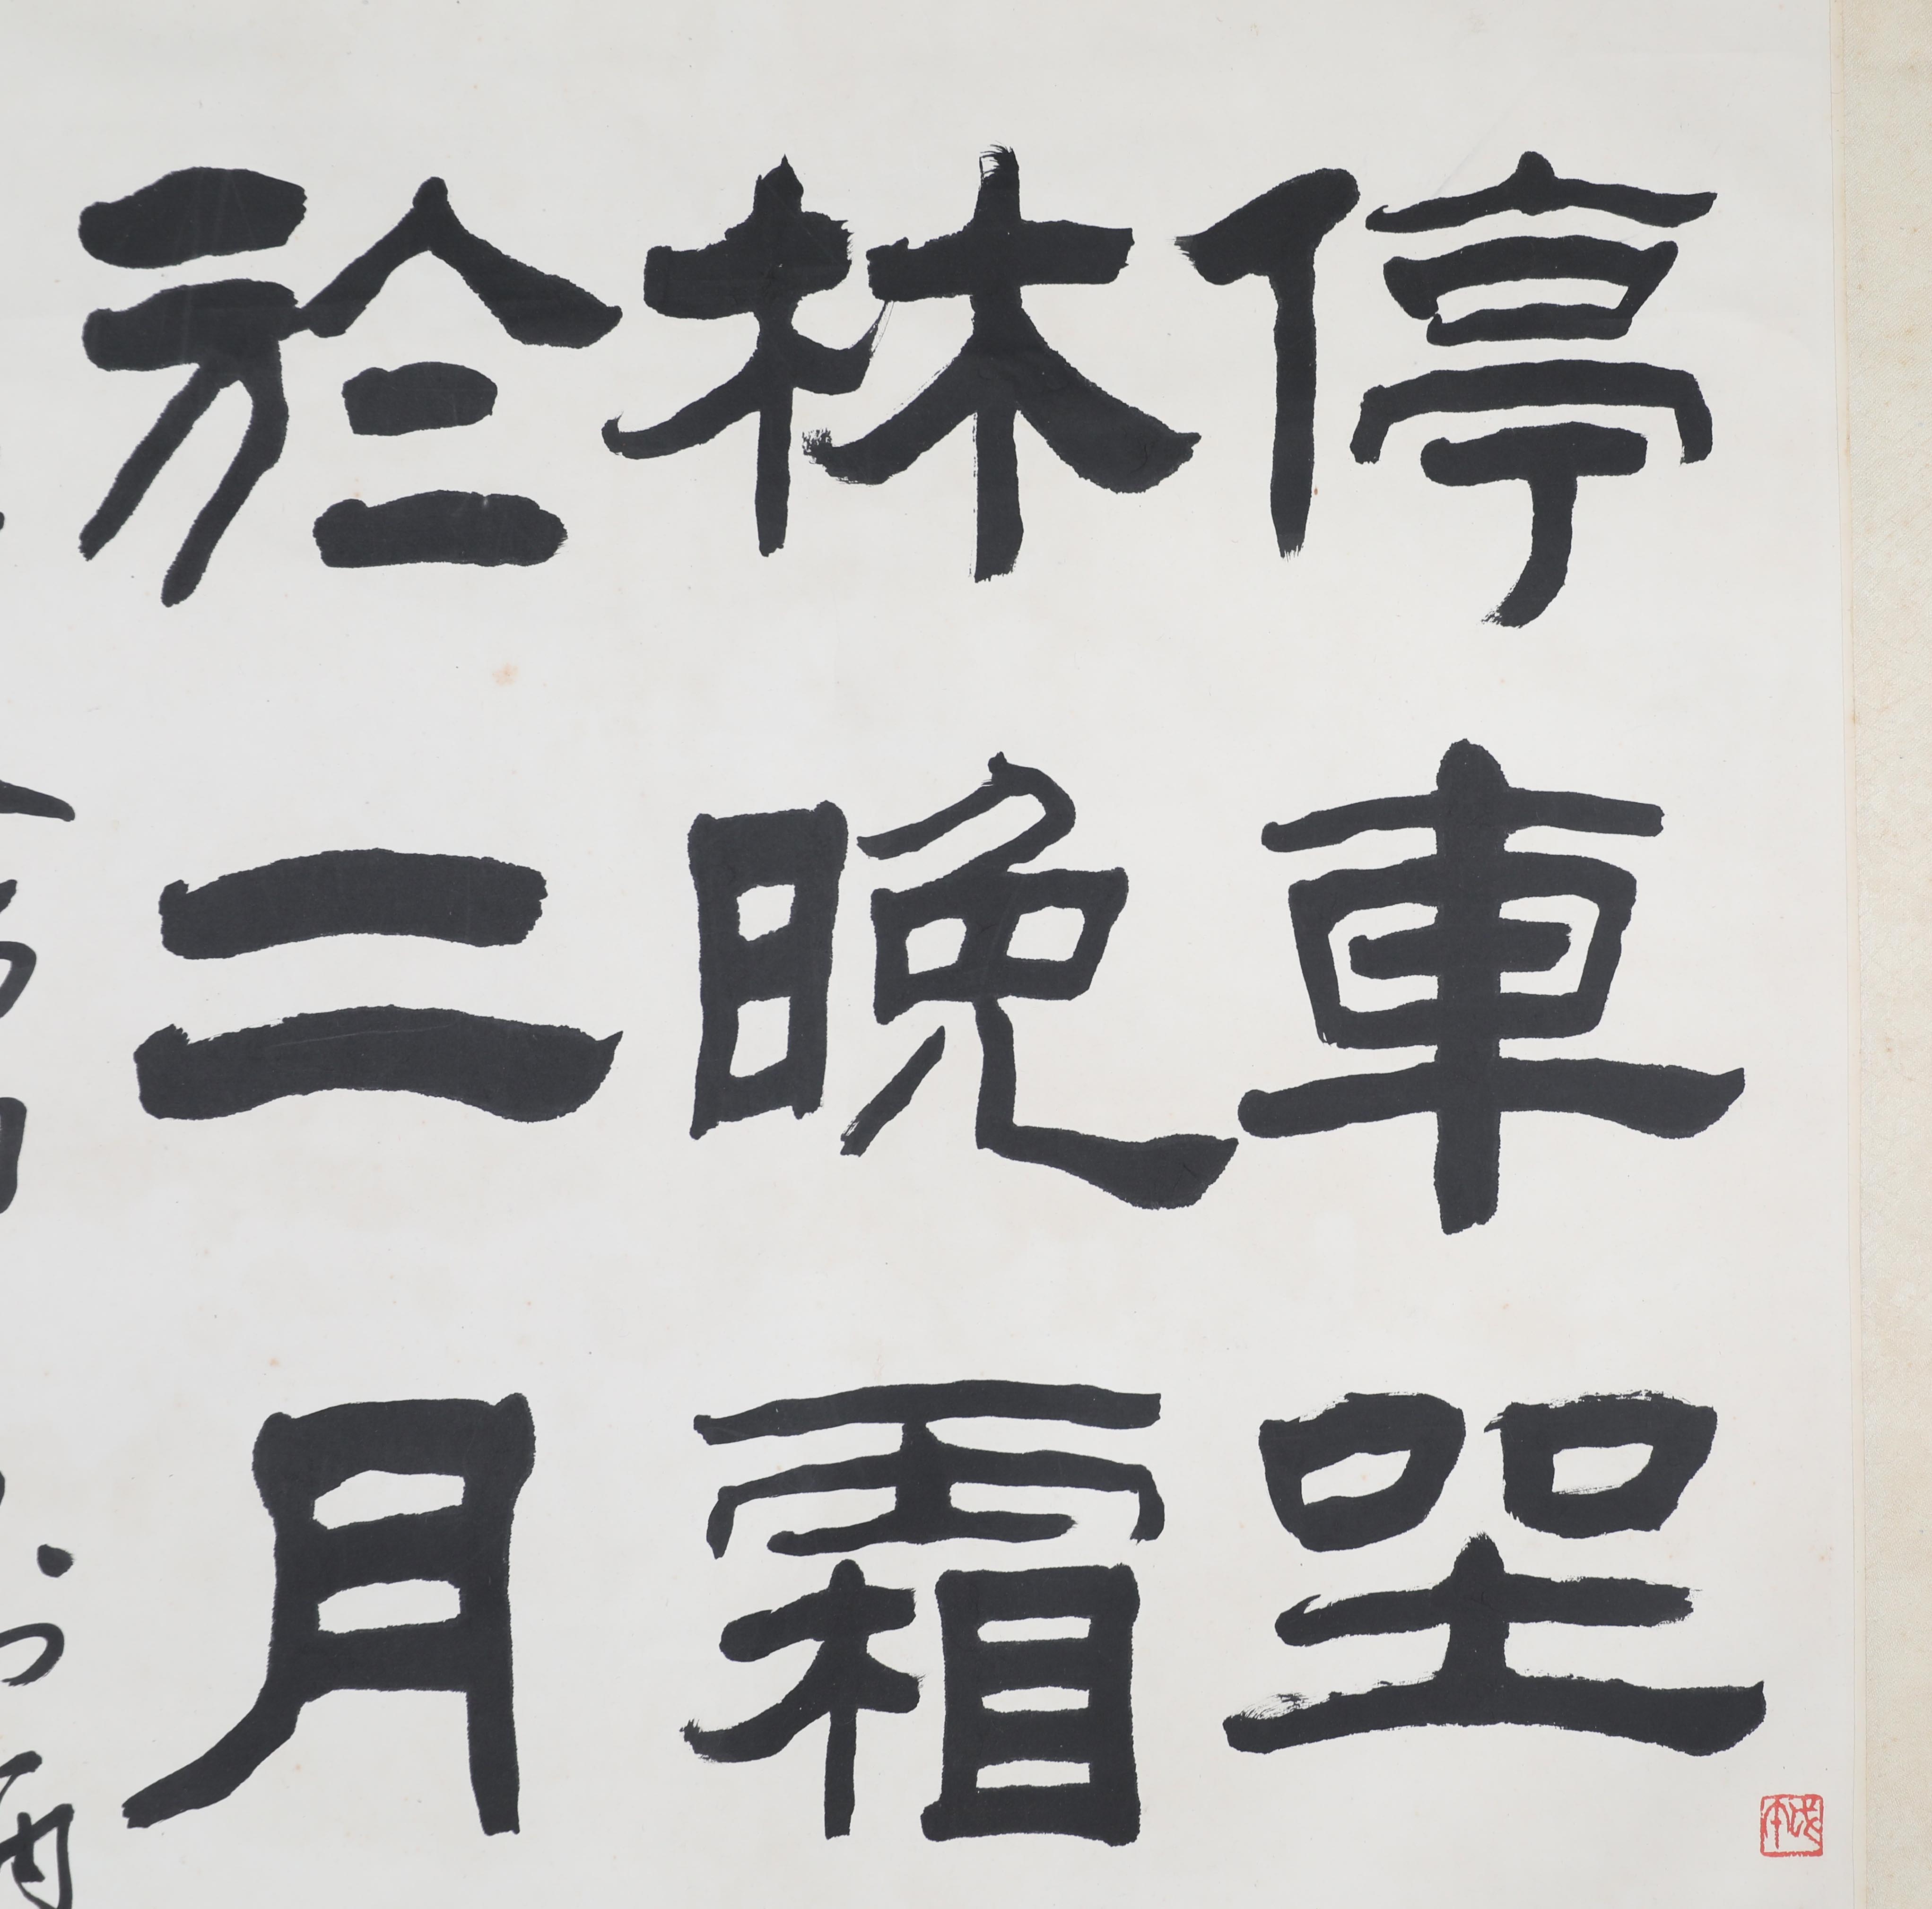 停車坐
林晚霜
於二月